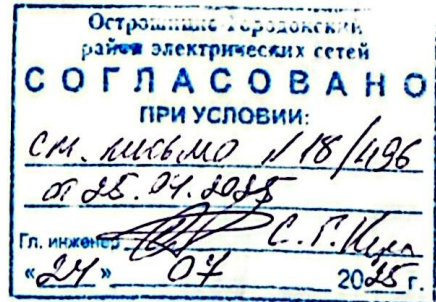 Острошицко-Городокский
район электрических сетей
СОГЛАСОВАНО
ПРИ УСЛОВИИ:
см. письмо № 18/496
от
Гл. инженер С. Г.
«24» 07 2025 г.